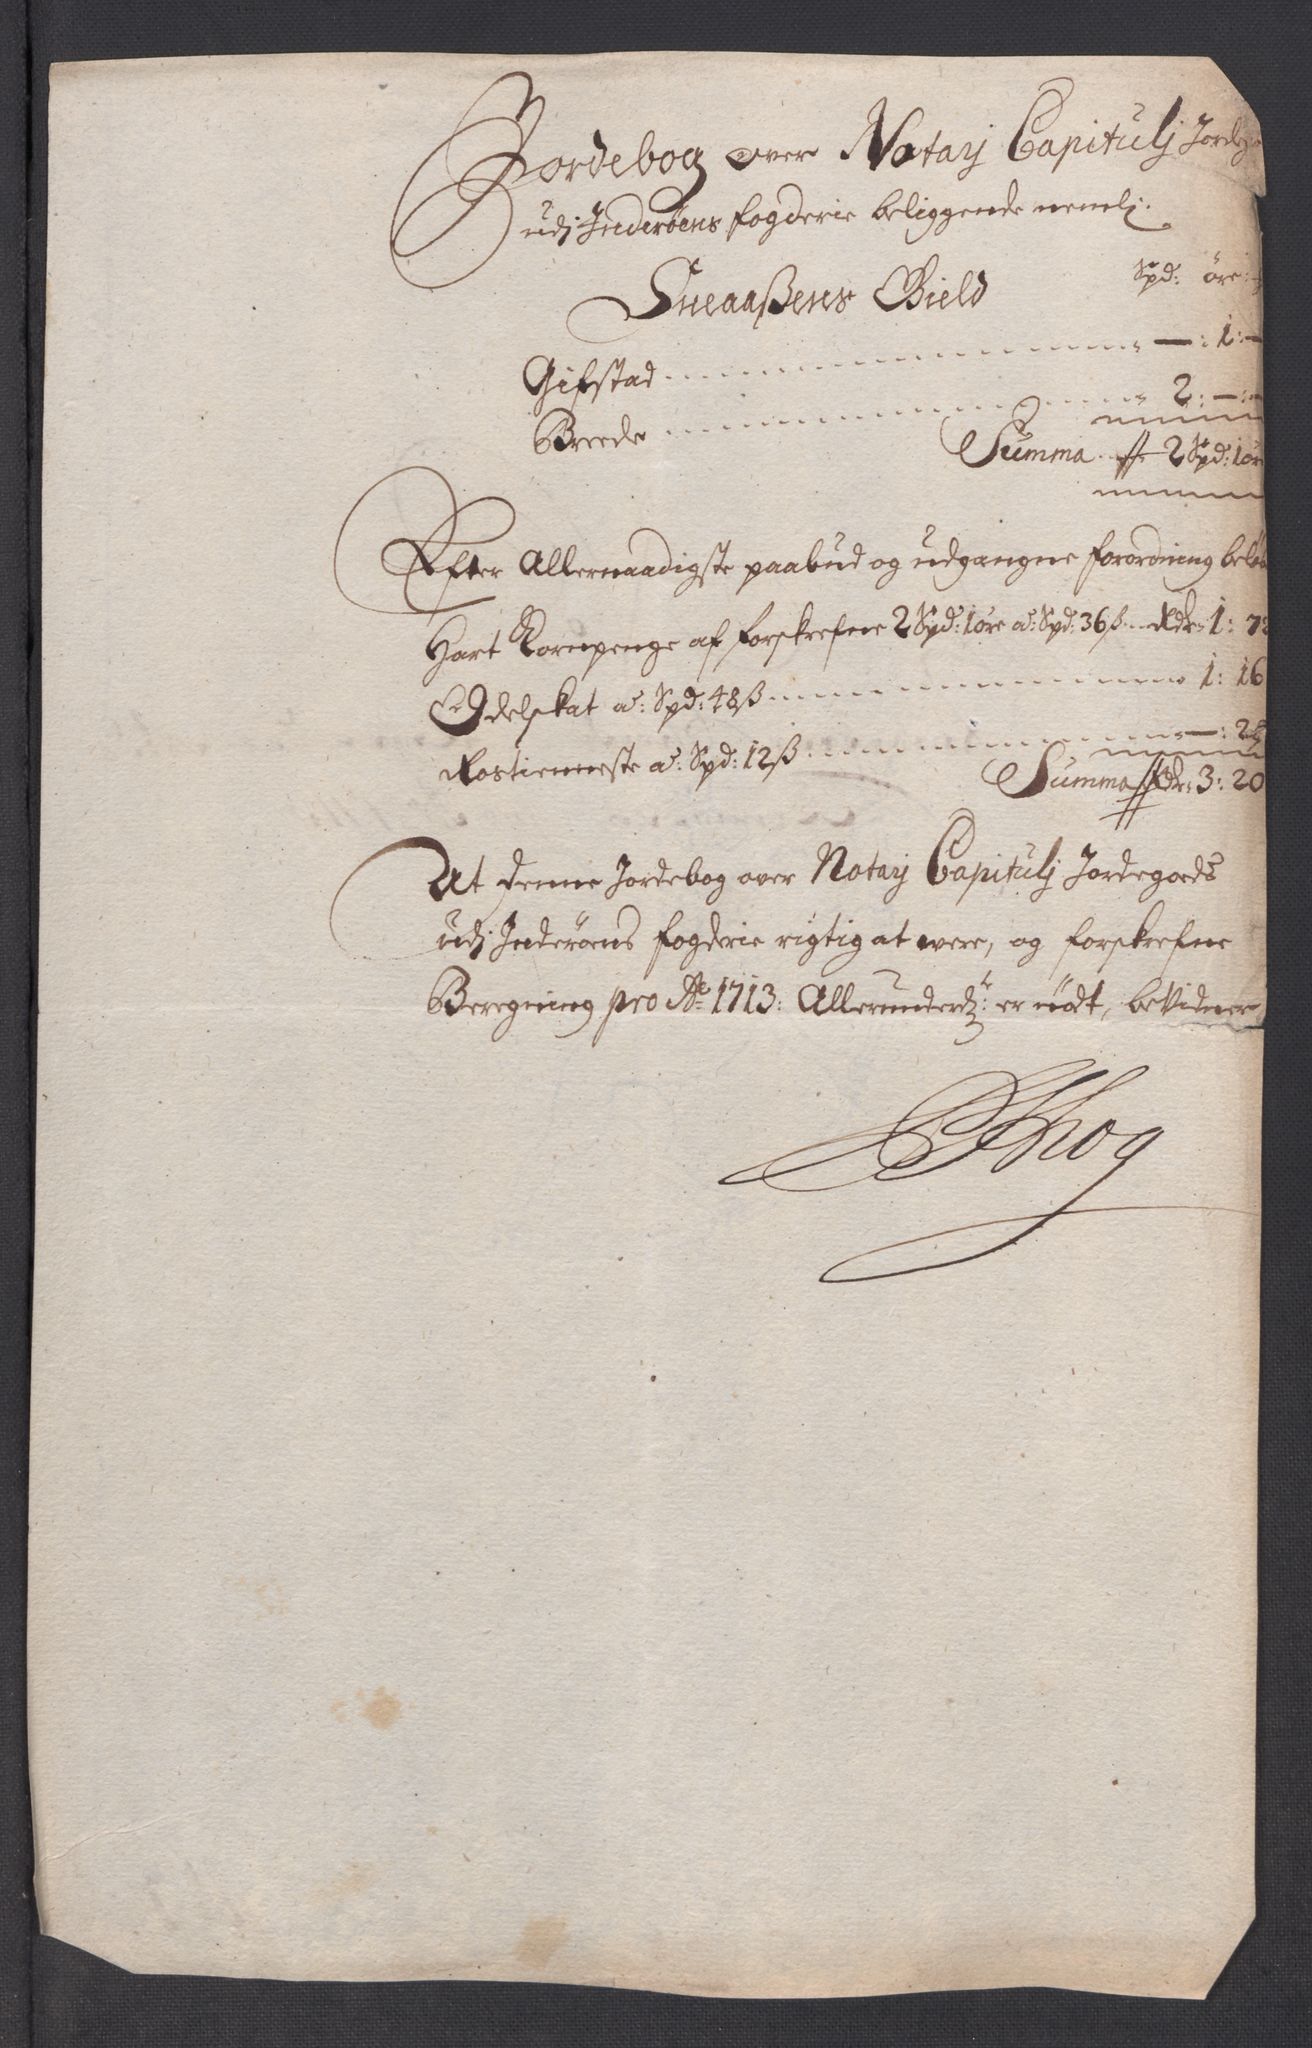 Jordebog over Notarj Capitulj Jordeg
udj Inderøens fogderie beliggende nemlj.
Sneaaßens Gield Spd: øre:
Gifstad — : 1 : —
Breede 2 : — : —
Summa 2 Spd: 1 øre
Efter Allernaadigste paabud og udgangne forordning belø
Hart Kornpenge af forskrefne 2 Spd: 1 øre a: Spd: 36 ß Rdr 1: 72
Odelskat a: Spd: 48 ß 1: 16
Rostienneste a: Spd: 12 ß — : 28
Summa Rdr: 3: 20
At denne Jordebog over Notarj Capitulj Jordegoeds
udj Inderøens fogderie rigtig at were, og forskrefne
Beregning pro Ao 1713: Allerunderdr: er giort, beVidner